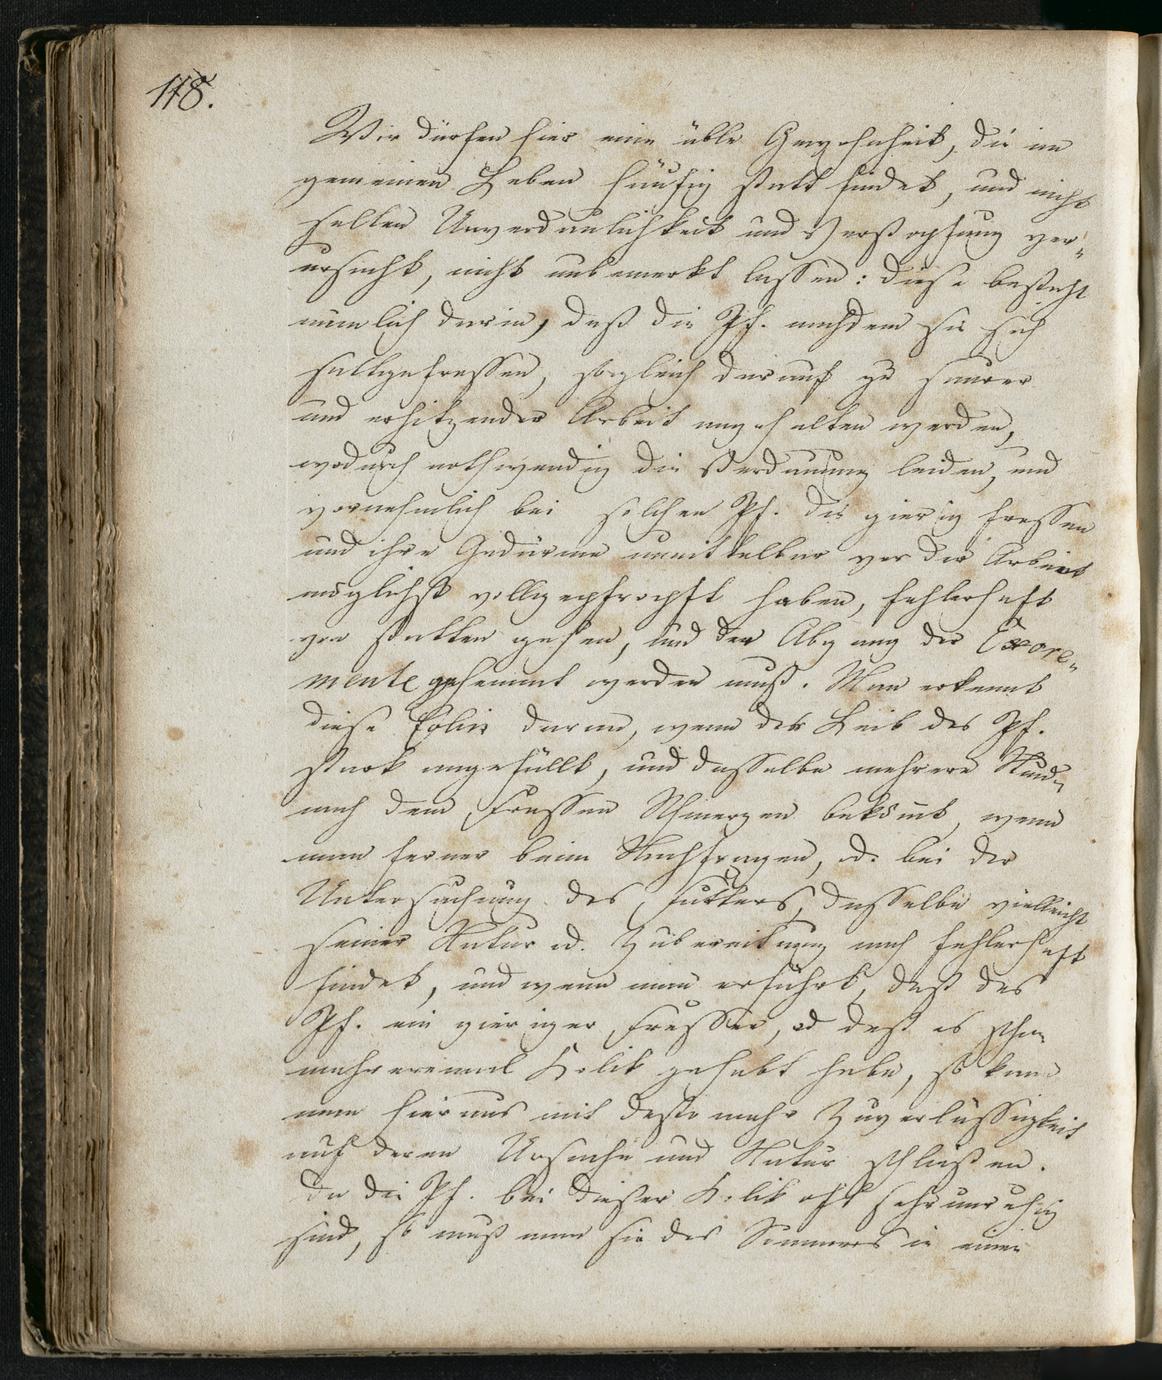 118.
Wir dürfen hier eine üble Gewohnheit, die im
gemeinen Leben häufig statt findet, und nicht
selten Unverdaulichkeit und Verstopfung ver„
ursacht, nicht unbemerkt lassen: diese besteht
nämlich darin, daß die Pf. nachdem sie sich
sattgefressen, sogleich darauf zu saurer
und erhitzender Arbeit angehalten werden,
wodurch nothwendig die Verdauung leiden, und
vornehmlich bei solchen Pf. die gierig fressen
und ihre Gedärme unmittelbar vor der Arbeit
möglichst vollgepfropft haben, fehlerhaft
von statten gehen, und der Abgang der Excre„
mente gehemmt werden muß. Man erkennt
diese Colik daran, wenn der Leib des Pf.
stark angefüllt, und dasselbe mehrere Stund
nach dem Fressen Schmerzen bekömt, wenn
man ferner beim Nachfragen, od. bei der
Untersuchung des Futters, dasselbe vielleicht
seiner Natur od. Zubereitung nach fehlerhaft
findet, und wenn man erfährt, daß das
Pf. ein gieriger Fresser, od daß es schon
mehreremal Kolik gehabt habe, so kann
man hieraus mit desto mehr Zuverlässigkeit
auf deren Ursache und Natur schließen.
Da die Pf. bei dießer Kolik oft sehr unruhig
sind, so muß man sie des Sommers in einen